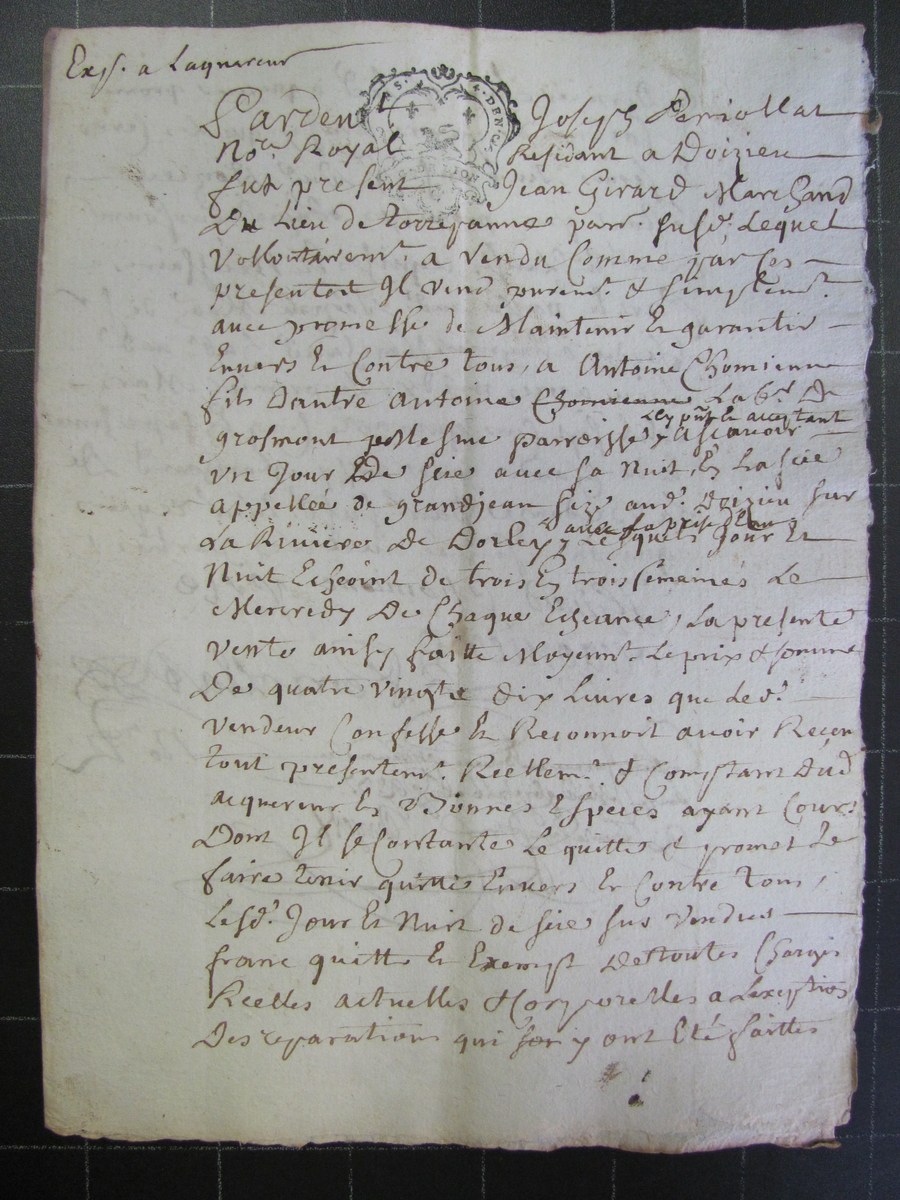 Exp. a Laquereur
Pardevt Joseph Periollat
No.re Royal Residant a Doizieu
fut present Jean Girard Marchand
Du Lieu de parr. susd. Lequel
Vollontairemt. a vendu Comme par ces
presentes Il vend puremt. & simplemt.
avec promesse de Maintenir Et garantir
Envers Et Contre tous, a Antoine Chomienne
fils Dautre Antoine Chomienne Lab.r De
grosmont parroisse, a scavoir
Icy pnt. Et acceptant
un Jour De seie avec sa Nuit, En La seie
appellée de grandjean size aud. doizieu sur
avec sa prise deau
La Riviere De Dorley, Lesquels Jour Et
Nuit Echeoint de trois En trois semaines Le
Mercredy De Chaque Echeance, La presente
vente ainsy faitte Moyent. Le prix & somme
De quatre vingts dix Livres que Led.
vendeur Confesse Et Reconnoit avoir Receu
tout presentemt. Reellemt. & Comptant Dud
acquereur En Bonnes Especes ayant Cours
Dont Il se Contante Le quitte & promet Le
faire tenir quitte Envers Et Contre tous,
Lesd. Jour Et Nuit de seie sus vendus
franc quitte Et Exempt De toutes Charges
Reelles actuelles & Corporelles a Lexception
Des reparations qui y ont Eté faittes